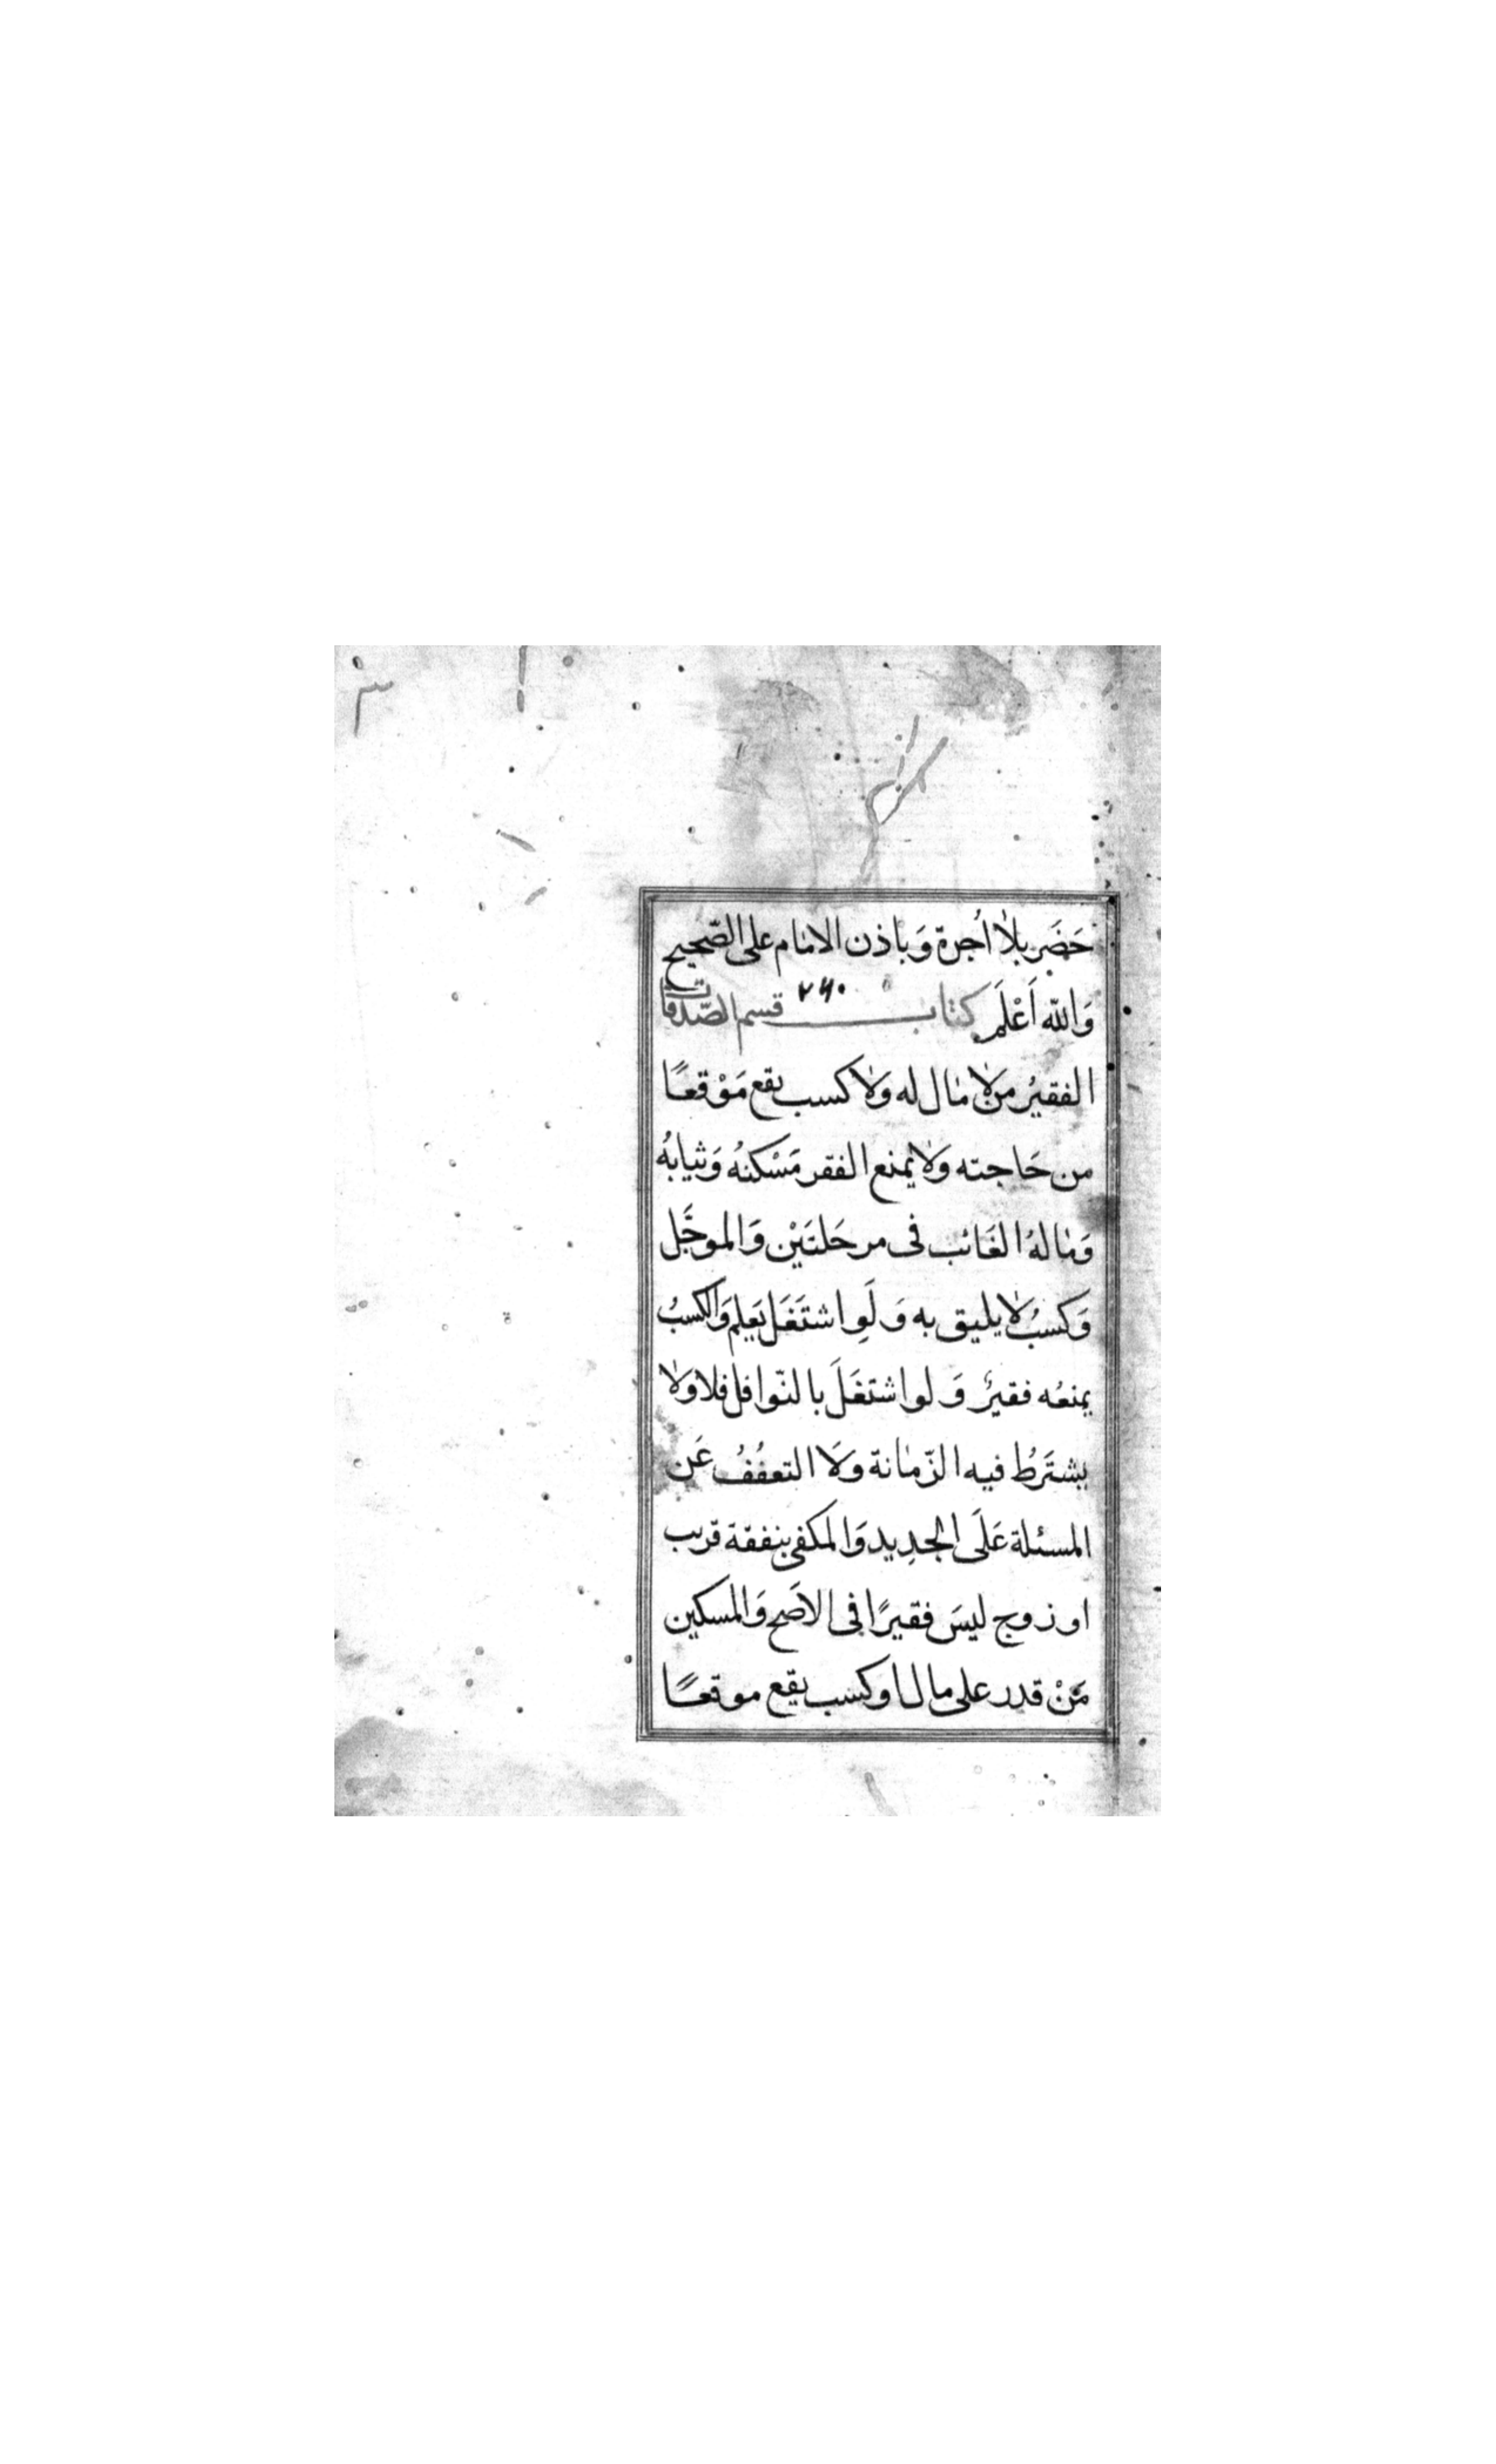 حَضَر بلا اُجرة وَباذن الامام على الصّحيح
وَاللّه اَعْلَم كتاب قسم الصّدقات
٢٦٠
الفقيرُ من لا مال له وَلا كسب يقع مَوْقعًا
من حَاجته وَلا يمنع الفقر مَسْكنهُ وَثيابهُ
وَماله الغَائب فى مرحَلتَيْن وَالموجَّل
وَكسبٌ لا يليق به وَلَوِ اشتَغَل بَعلم وَالكسبُ
يمنعُه فقيرٌ وَلو اشتغَلَ بالنّوافل فلا وَلا
يشتَرطُ فيه الزّمانة وَلَا التعفُفُ عَن
المسئلة عَلَى الجديد وَالمكفى بنفقة قريب
او زوج ليسَ فقيرًا فى الاصَح وَالمسكين
مَنْ قدر على مال او كسب يقع موقعًا